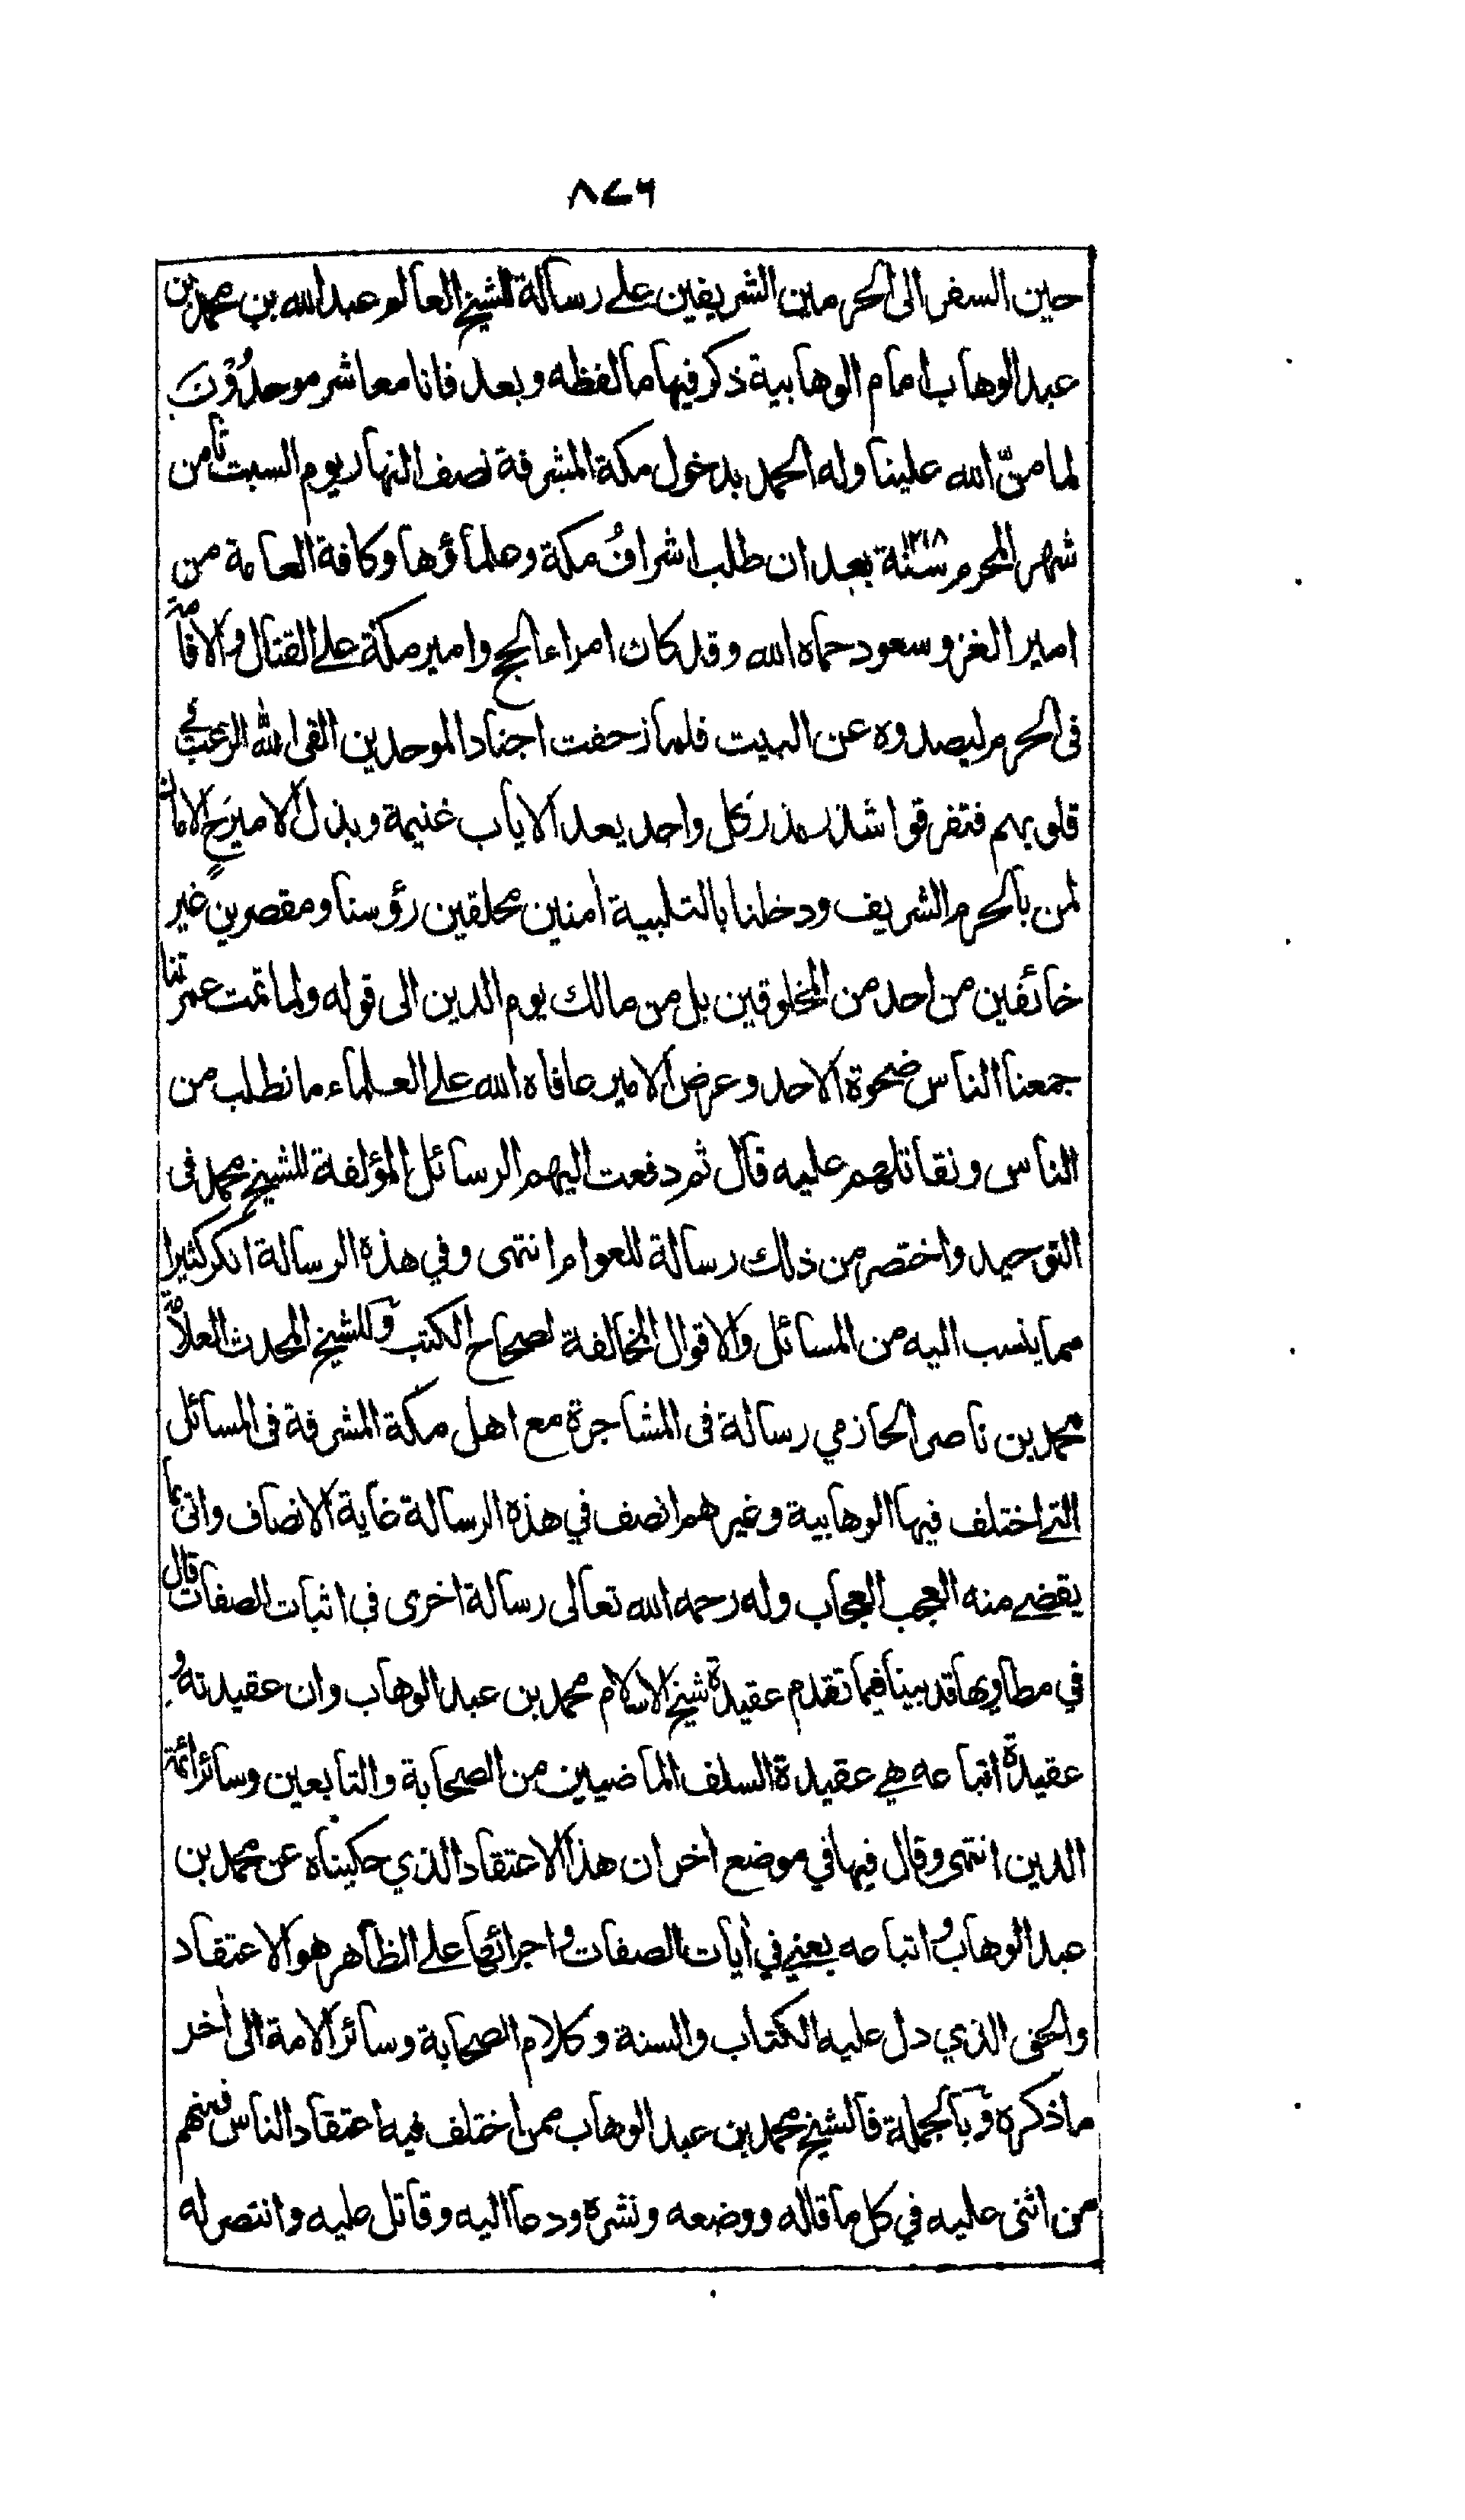 ٨٧٦
حين السفر الى الحرمين الشريفين على رسالة للشيخ العالم عبد الله بن محمد بن
عبد الوهاب امام الوهابية ذكر فيها ما لفظه وبعد فانا معاشر موحدُوْنَ
لما منّ الله علينا وله الحمد بدخول مكة المشرفة نصف النهار يوم السبت ثامن
شهر المحرم سنة ١٢١٨ بعد ان طلب اشرافُ مكة وعلماؤها وكافة العامة من
امير الغزو سعود حماه الله وقد كان امراء الحج وامير مكة على القتال والاقامة
فى الحرم ليصدوه عن البيت فلما زحفت اجناد الموحدين القى الله الرعب في
قلوبهم فتفرقوا شذر مذر كل واحد يعد الاياب غنيمة وبذل الامير حٍ الامان
لمن بالحرم الشريف ودخلنا بالتلبية اٰمنين محلقين رؤسنا ومقصرين غير
خائفين من احد من المخلوقين بل من مالك يوم الدين الى قوله ولما تمت عمرتنا
جمعنا الناس ضحوة الاحد وعرض الامير عافاه الله على العلماء ما نطلب من
الناس ونقاتلهم عليه قال ثم دفعت اليهم الرسائل المؤلفة للشيخ محمد فى
التوحيد واختصر من ذلك رسالة للعوام انتهى وفي هذه الرسالة انكر كثيرا
مما ينسب اليه من المسائل والاقوال المخالفة لصحاح الكتب وللشيخ المحدث العلامة
محمد بن ناصر الحازمي رسالة فى المشاجرة مع اهل مكة المشرفة فى المسائل
التے اختلف فيها الوهابية وغيرهم انصف في هذه الرسالة غاية الانصاف واتى بما
يقضے منه العجب العجاب وله رحمه الله تعالى رسالة اخرى في اثبات الصفات قال
في مطاويها قد بينا فيما تقدم عقيدة شيخ الاسلام محمد بن عبد الوهاب وان عقيدته و
عقيدة اتباعه هي عقيدة السلف الماضيين من الصحابة والتابعين وسائر ائمة
الدين انتهى وقال فيها في موضع اٰخر ان هذا الاعتقاد الذي حكيناه عن محمد بن
عبد الوهاب واتباعه يعني في اٰيات الصفات واجرائها على الظاهر هو الاعتقاد
والحق الذي دل عليه الكتاب والسنة وكلام الصحابة وسائر الامة الى اٰخر
ما ذكره وبالجملة فالشيخ محمد بن عبد الوهاب ممن اختلف فيه اعتقاد الناس فمنهم
من اثنى عليه في كل ما قاله ووضعه ونشره ودعا اليه وقاتل عليه وانتصر له